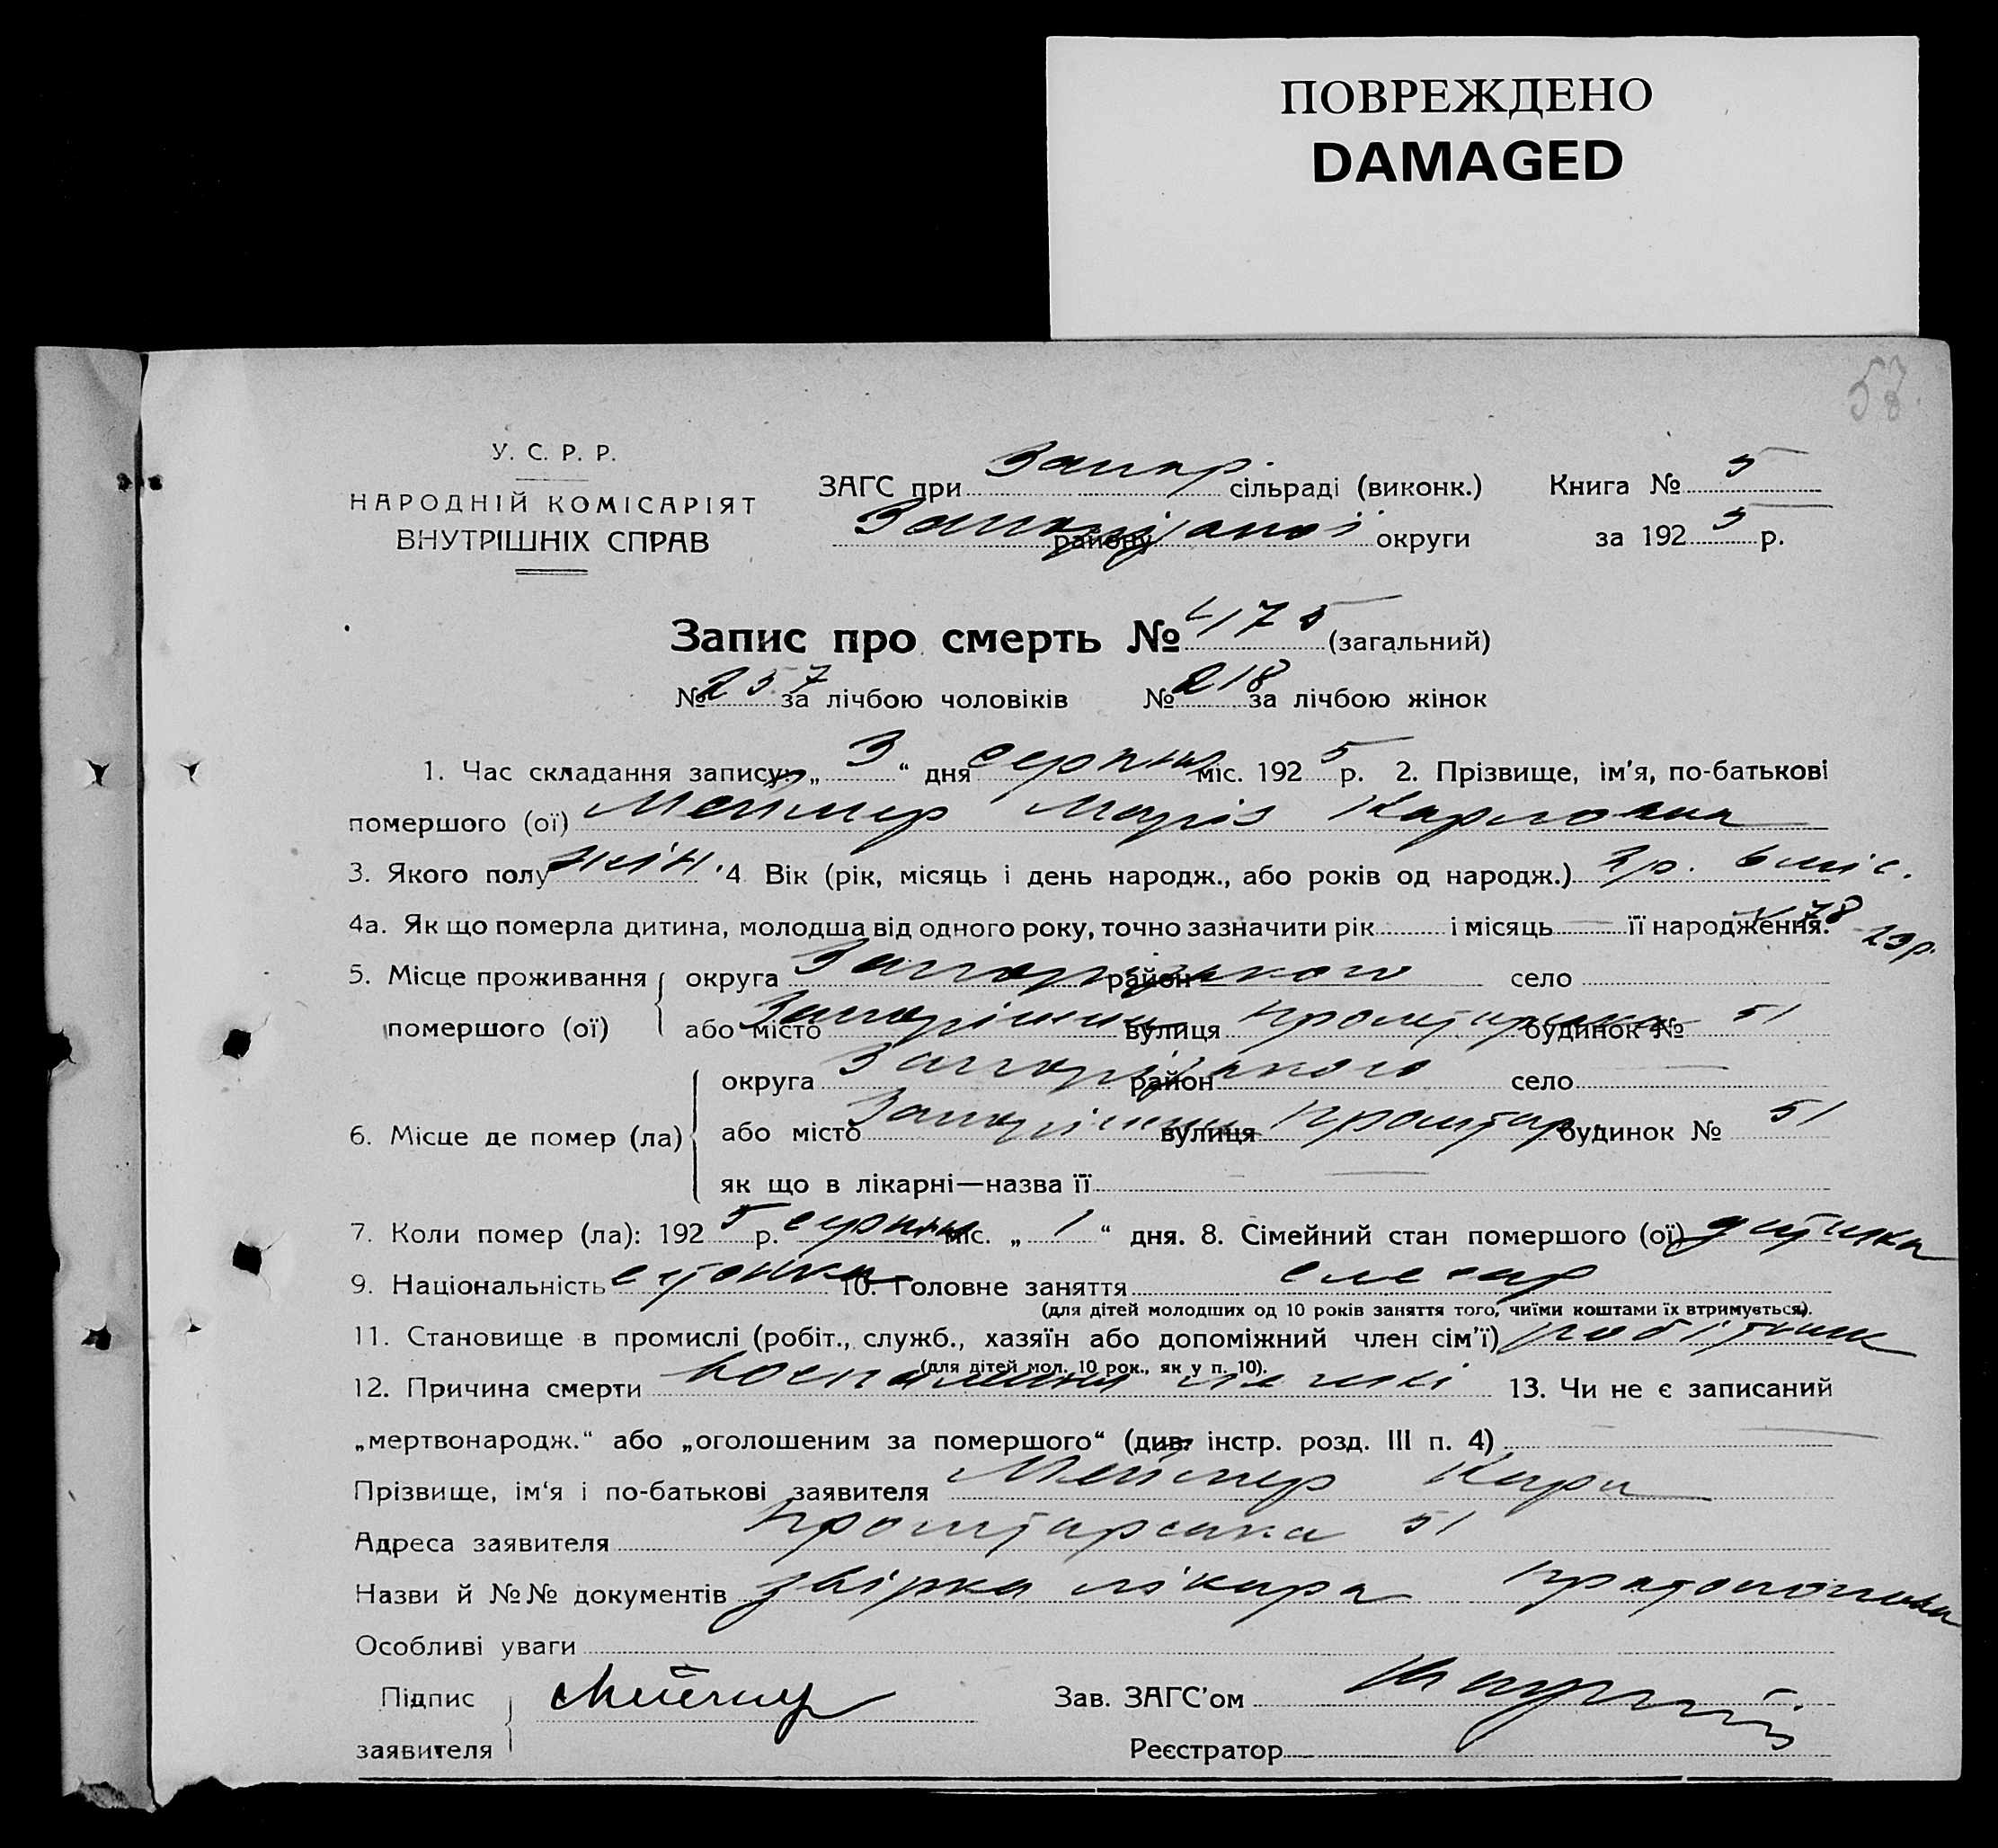 ПОВРЕЖДЕНО
DAMAGED
58.
У. С. Р. Р.
НАРОДНІЙ КОМІСАРІЯТ
ВНУТРІШНІХ СПРАВ
ЗАГС при Запор. сільраді (виконк.) Книга № 5
району округи за 192 5 р.
Запис про смерть № 475 (загальний)
№ 257 за лічбою чоловіків № 218 за лічбою жінок
1. Час складання запису „ 3 “ дня серпня міс. 192 5 р. 2. Прізвище, ім'я, по-батькові
помершого (ої) Мейнер Марія Карловна
3. Якого полу жін. 4 Вік (рік, місяць і день народж., або років од народж.) 2 р. 6 міс.
4а. Як що померла дитина, молодша від одного року, точно зазначити рік і місяць — її народження.
23 р.
5. Місце проживання помершого (ої) округа Запорізького район село
або місто Запоріжжя вулиця Пролетарська будинок № 51
6. Місце де помер (ла) округа Запорізького район село —
або місто Запоріжжя вулиця Пролетар. будинок № 51
як що в лікарні—назва її —
7. Коли помер (ла): 192 5 р. серпня міс. „ 1 “ дня. 8. Сімейний стан помершого (ої) дитинка
9. Національність естонка 10. Головне заняття слесар
(для дітей молодших од 10 років заняття того, чиїми коштами їх втримується).
11. Становище в промислі (робіт., служб., хазяїн або допоміжний член сім'ї) робітник
(для дітей мол. 10 рок., як у п. 10).
12. Причина смерти воспаления 13. Чи не є записаний
„мертвонародж.“ або „оголошеним за помершого“ (див. інстр. розд. III п. 4) —
Прізвище, ім'я і по-батькові заявителя Мейнер Карл
Адреса заявителя Пролетарська 51
Назви й №№ документів лікаря
Особливі уваги
Підпис заявителя Мейнер Зав. ЗАГС'ом
Реєстратор